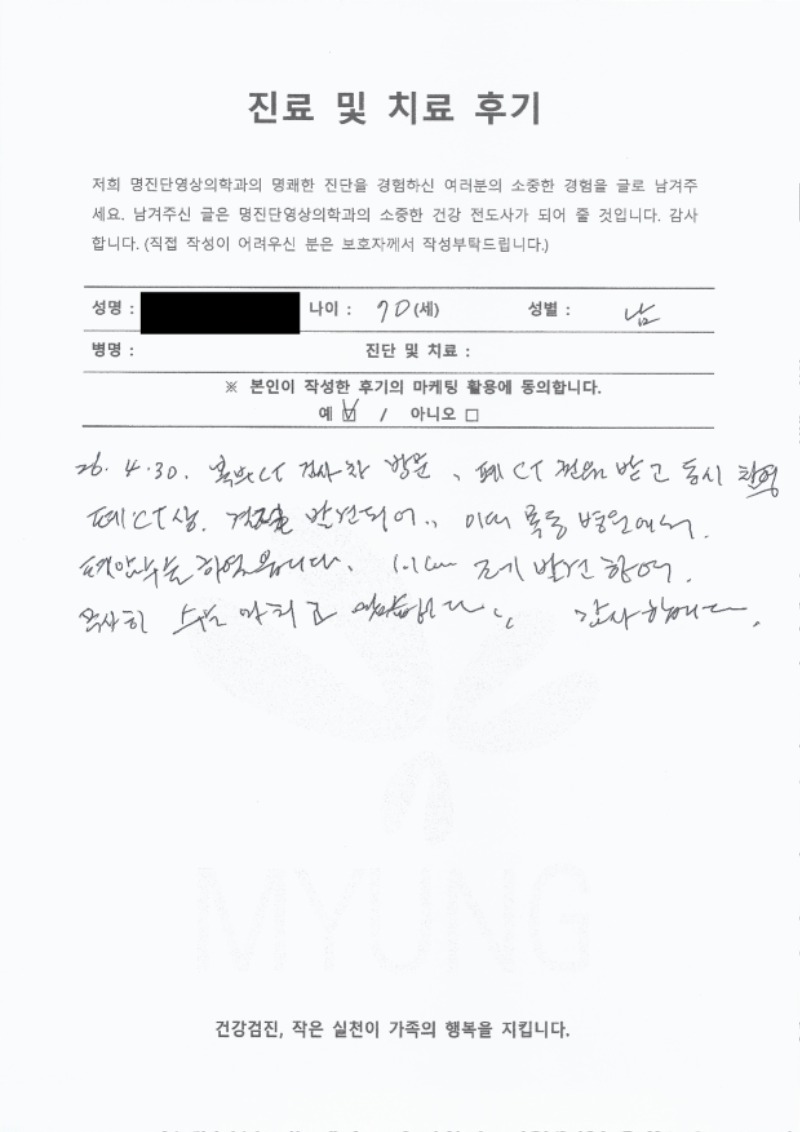 진료 및 치료 후기
저희 명진단영상의학과의 명쾌한 진단을 경험하신 여러분의 소중한 경험을 글로 남겨주
세요. 남겨주신 글은 명진단영상의학과의 소중한 건강 전도사가 되어 줄 것입니다. 감사
합니다. (직접 작성이 어려우신 분은 보호자께서 작성부탁드립니다.)
성명 : 나이 : 70 (세) 성별 : 남
병명 : 진단 및 치료 :
※ 본인이 작성한 후기의 마케팅 활용에 동의합니다.
예 ☑ / 아니오 □
26. 4. 30. 복부CT 검사차 방문, 폐 CT 권유 받고 동시 촬영
폐CT상. 결절 발견되어.. 이대 목동 병원에서.
폐암수술 하였습니다. 1.1cm 조기 발견하여.
무사히 수술 마치고 감사합니다.
MYUNG
건강검진, 작은 실천이 가족의 행복을 지킵니다.